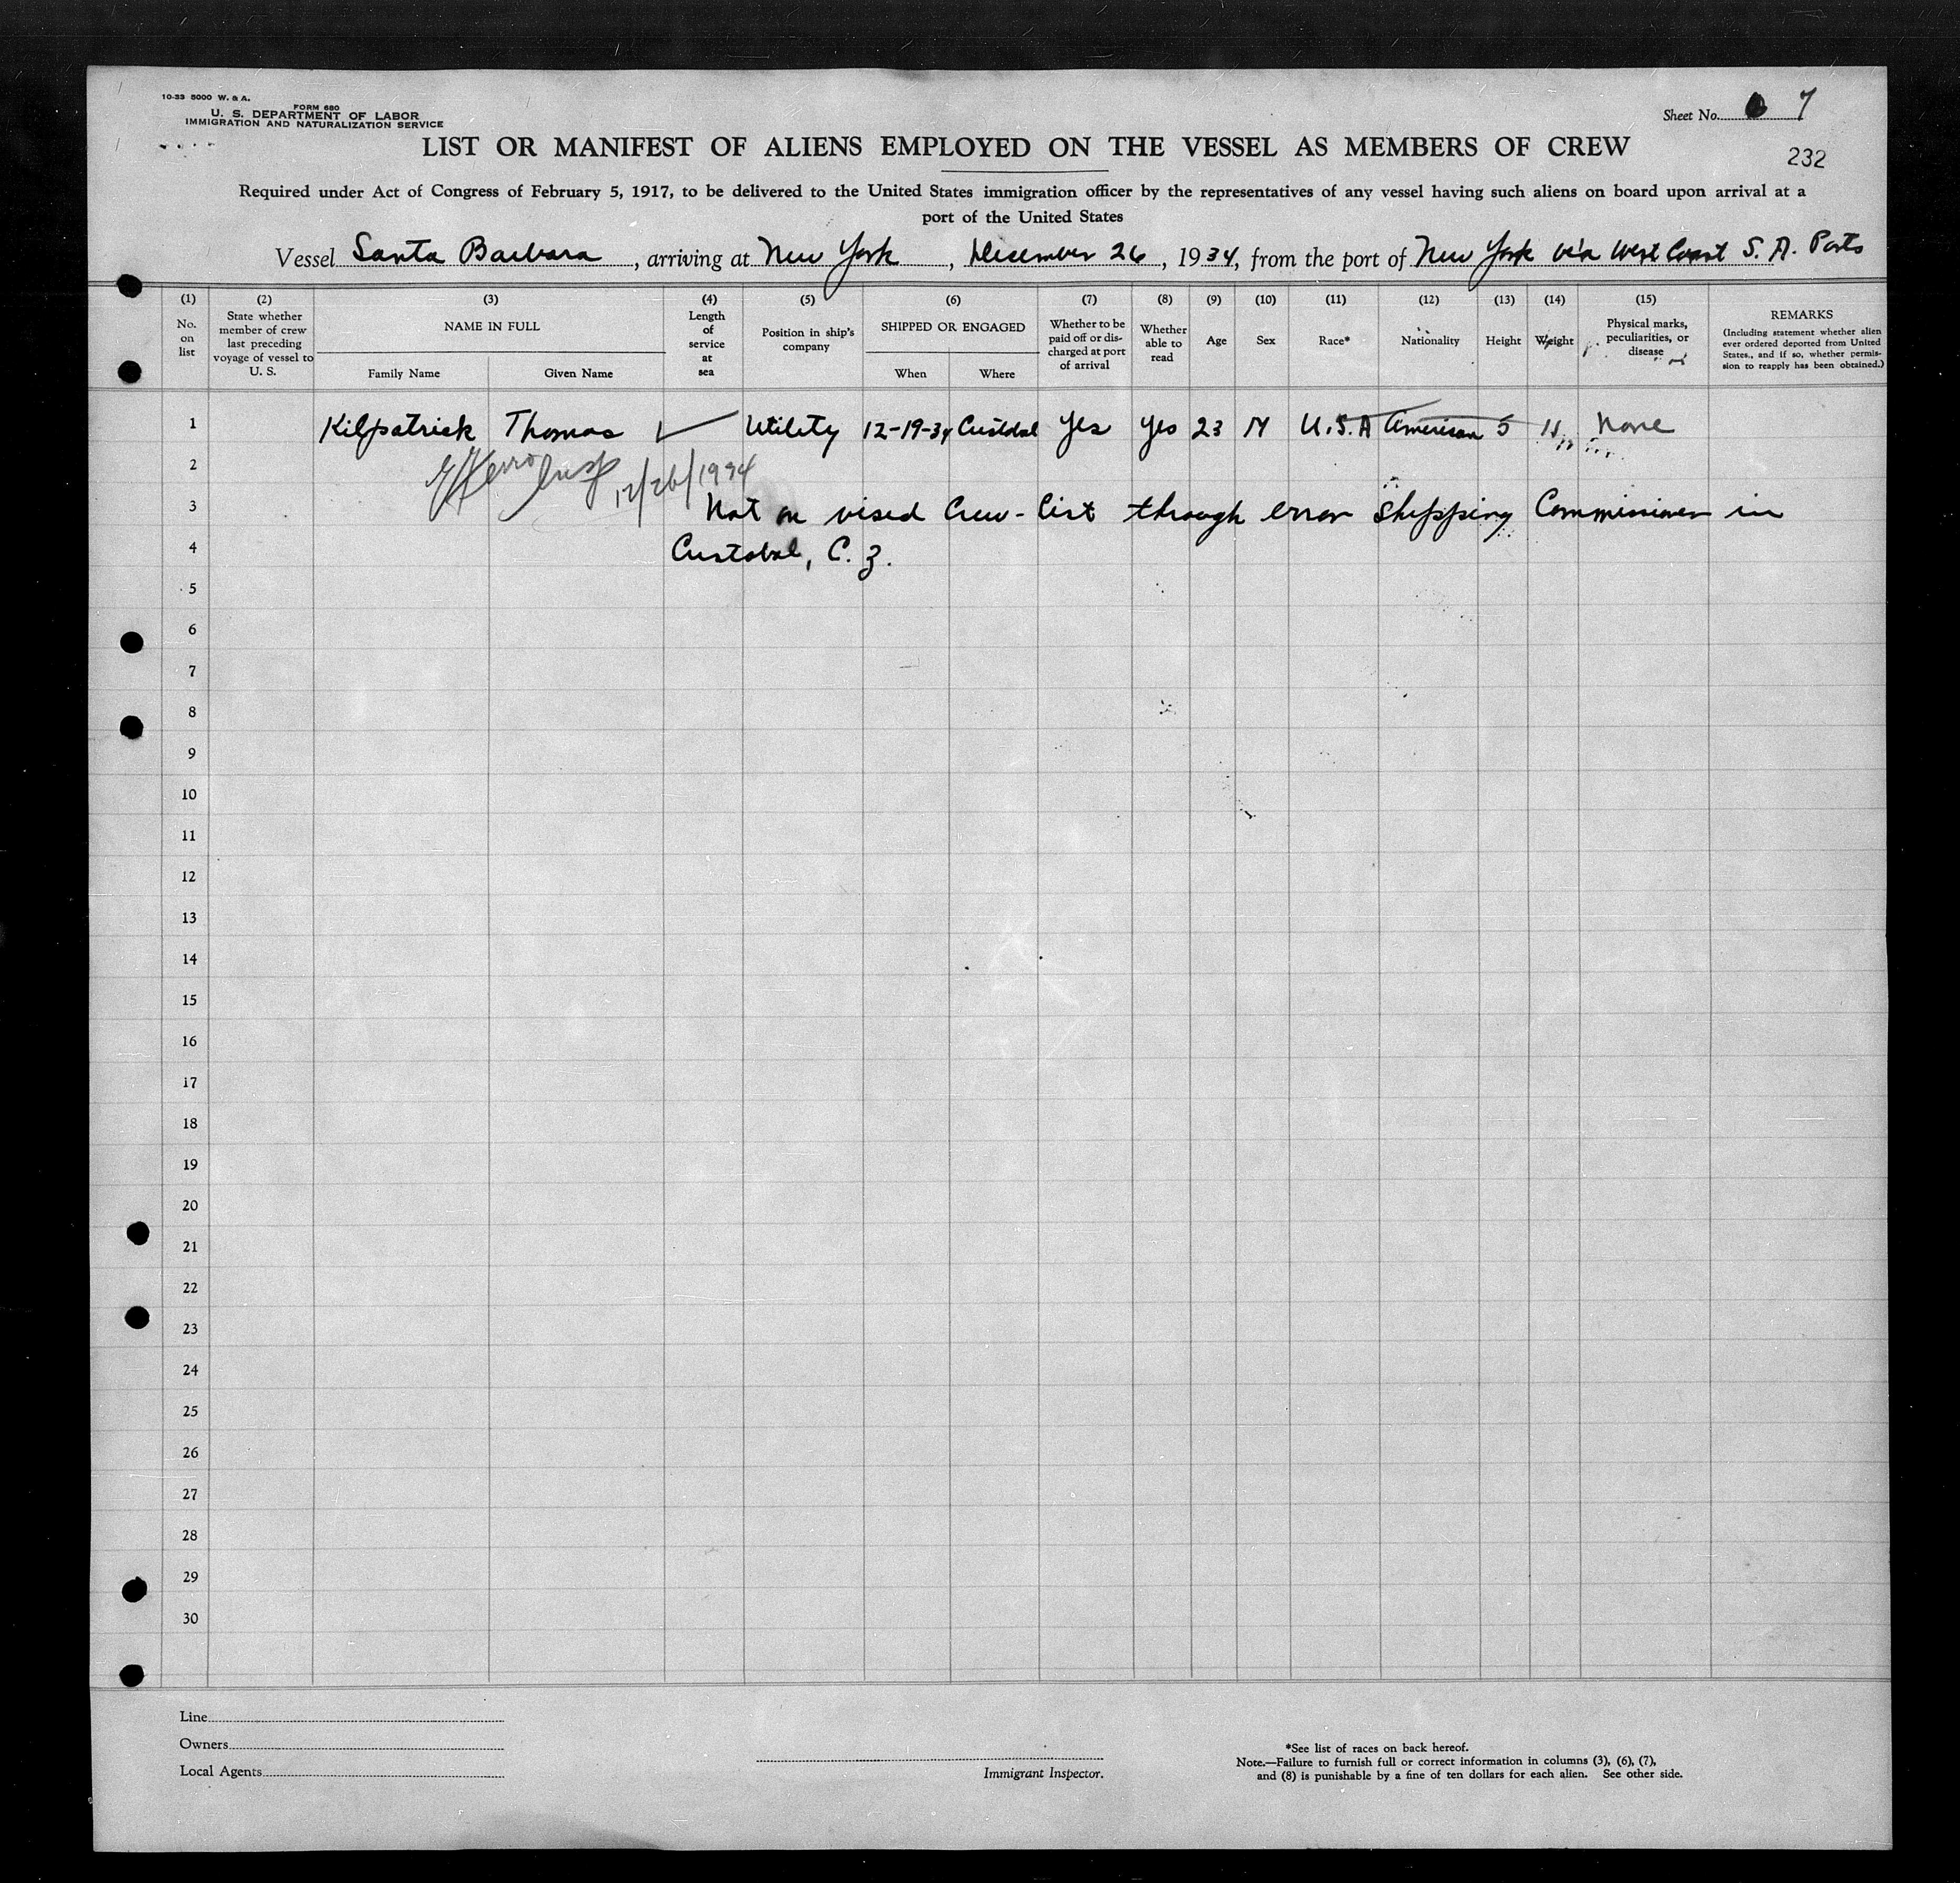 10-33 5000 W. & A.
FORM 680
U. S. DEPARTMENT OF LABOR
IMMIGRATION AND NATURALIZATION SERVICE
Sheet No. 7
LIST OR MANIFEST OF ALIENS EMPLOYED ON THE VESSEL AS MEMBERS OF CREW
232
Required under Act of Congress of February 5, 1917, to be delivered to the United States immigration officer by the representatives of any vessel having such aliens on board upon arrival at a
port of the United States
Vessel Santa Barbara, arriving at New York, December 26, 1934, from the port of New York via West Coast S. A. Ports
(1) No. on list
(2) State whether member of crew last preceding voyage of vessel to U. S.
(3) NAME IN FULL
Family Name
Given Name
(4) Length of service at sea
(5) Position in ship's company
(6) SHIPPED OR ENGAGED
When
Where
(7) Whether to be paid off or dis-charged at port of arrival
(8) Whether able to read
(9) Age
(10) Sex
(11) Race*
(12) Nationality
(13) Height
(14) Weight
(15) Physical marks, peculiarities, or disease
REMARKS
(Including statement whether alien ever ordered deported from United States, and if so, whether permis-sion to reapply has been obtained.)
1 Kilpatrick Thomas Utility 12-19-34 Cristobal Yes Yes 23 M U.S.A American 5 11 None
2 12/26/1934
3 Not on vised Crew-list through error Shipping Commissioner in
4 Cristobal, C. Z.
5
6
7
8
9
10
11
12
13
14
15
16
17
18
19
20
21
22
23
24
25
26
27
28
29
30
Line
Owners
Local Agents
Immigrant Inspector.
*See list of races on back hereof.
Note.—Failure to furnish full or correct information in columns (3), (6), (7),
and (8) is punishable by a fine of ten dollars for each alien. See other side.